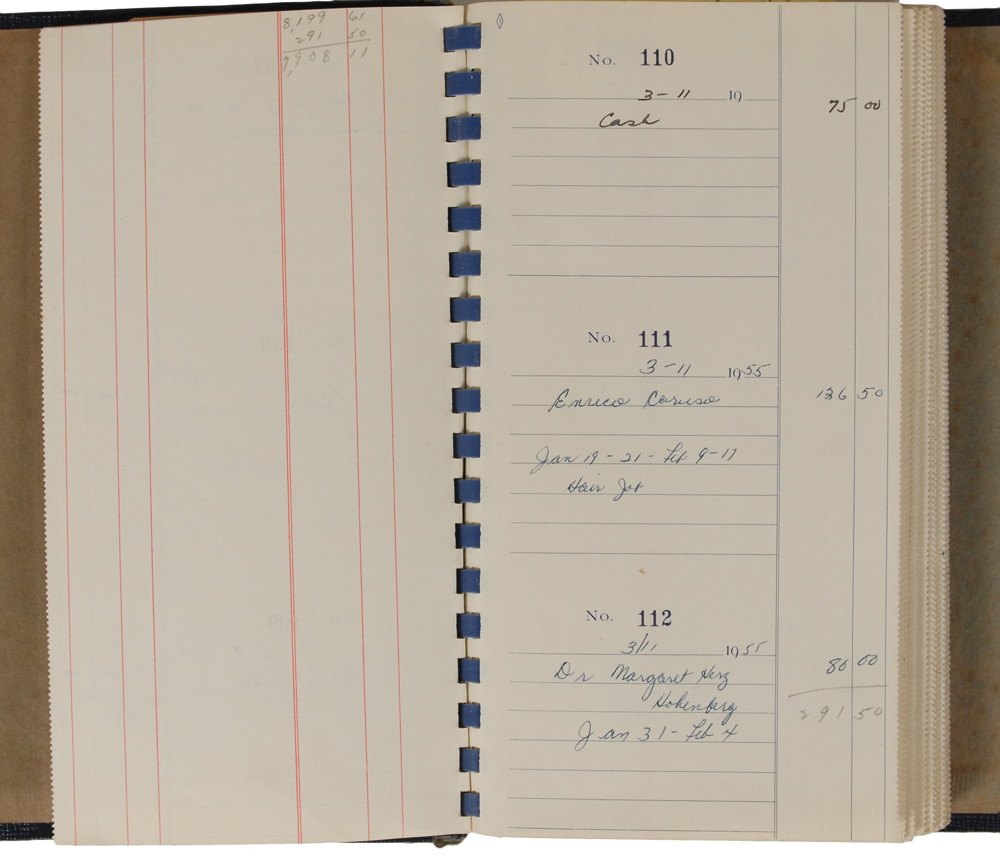 8,199 61
291 50
7,908 11
No. 110
3-11 19
75 00
Cash
No. 111
3-11 1955
Enrico Caruso 136 50
Jan 19-21- Feb 9-17
Hair Job
No. 112
3/11 1955
Dr Margaret Herz 80 00
Hohenberg
291 50
Jan 31 - Feb 4